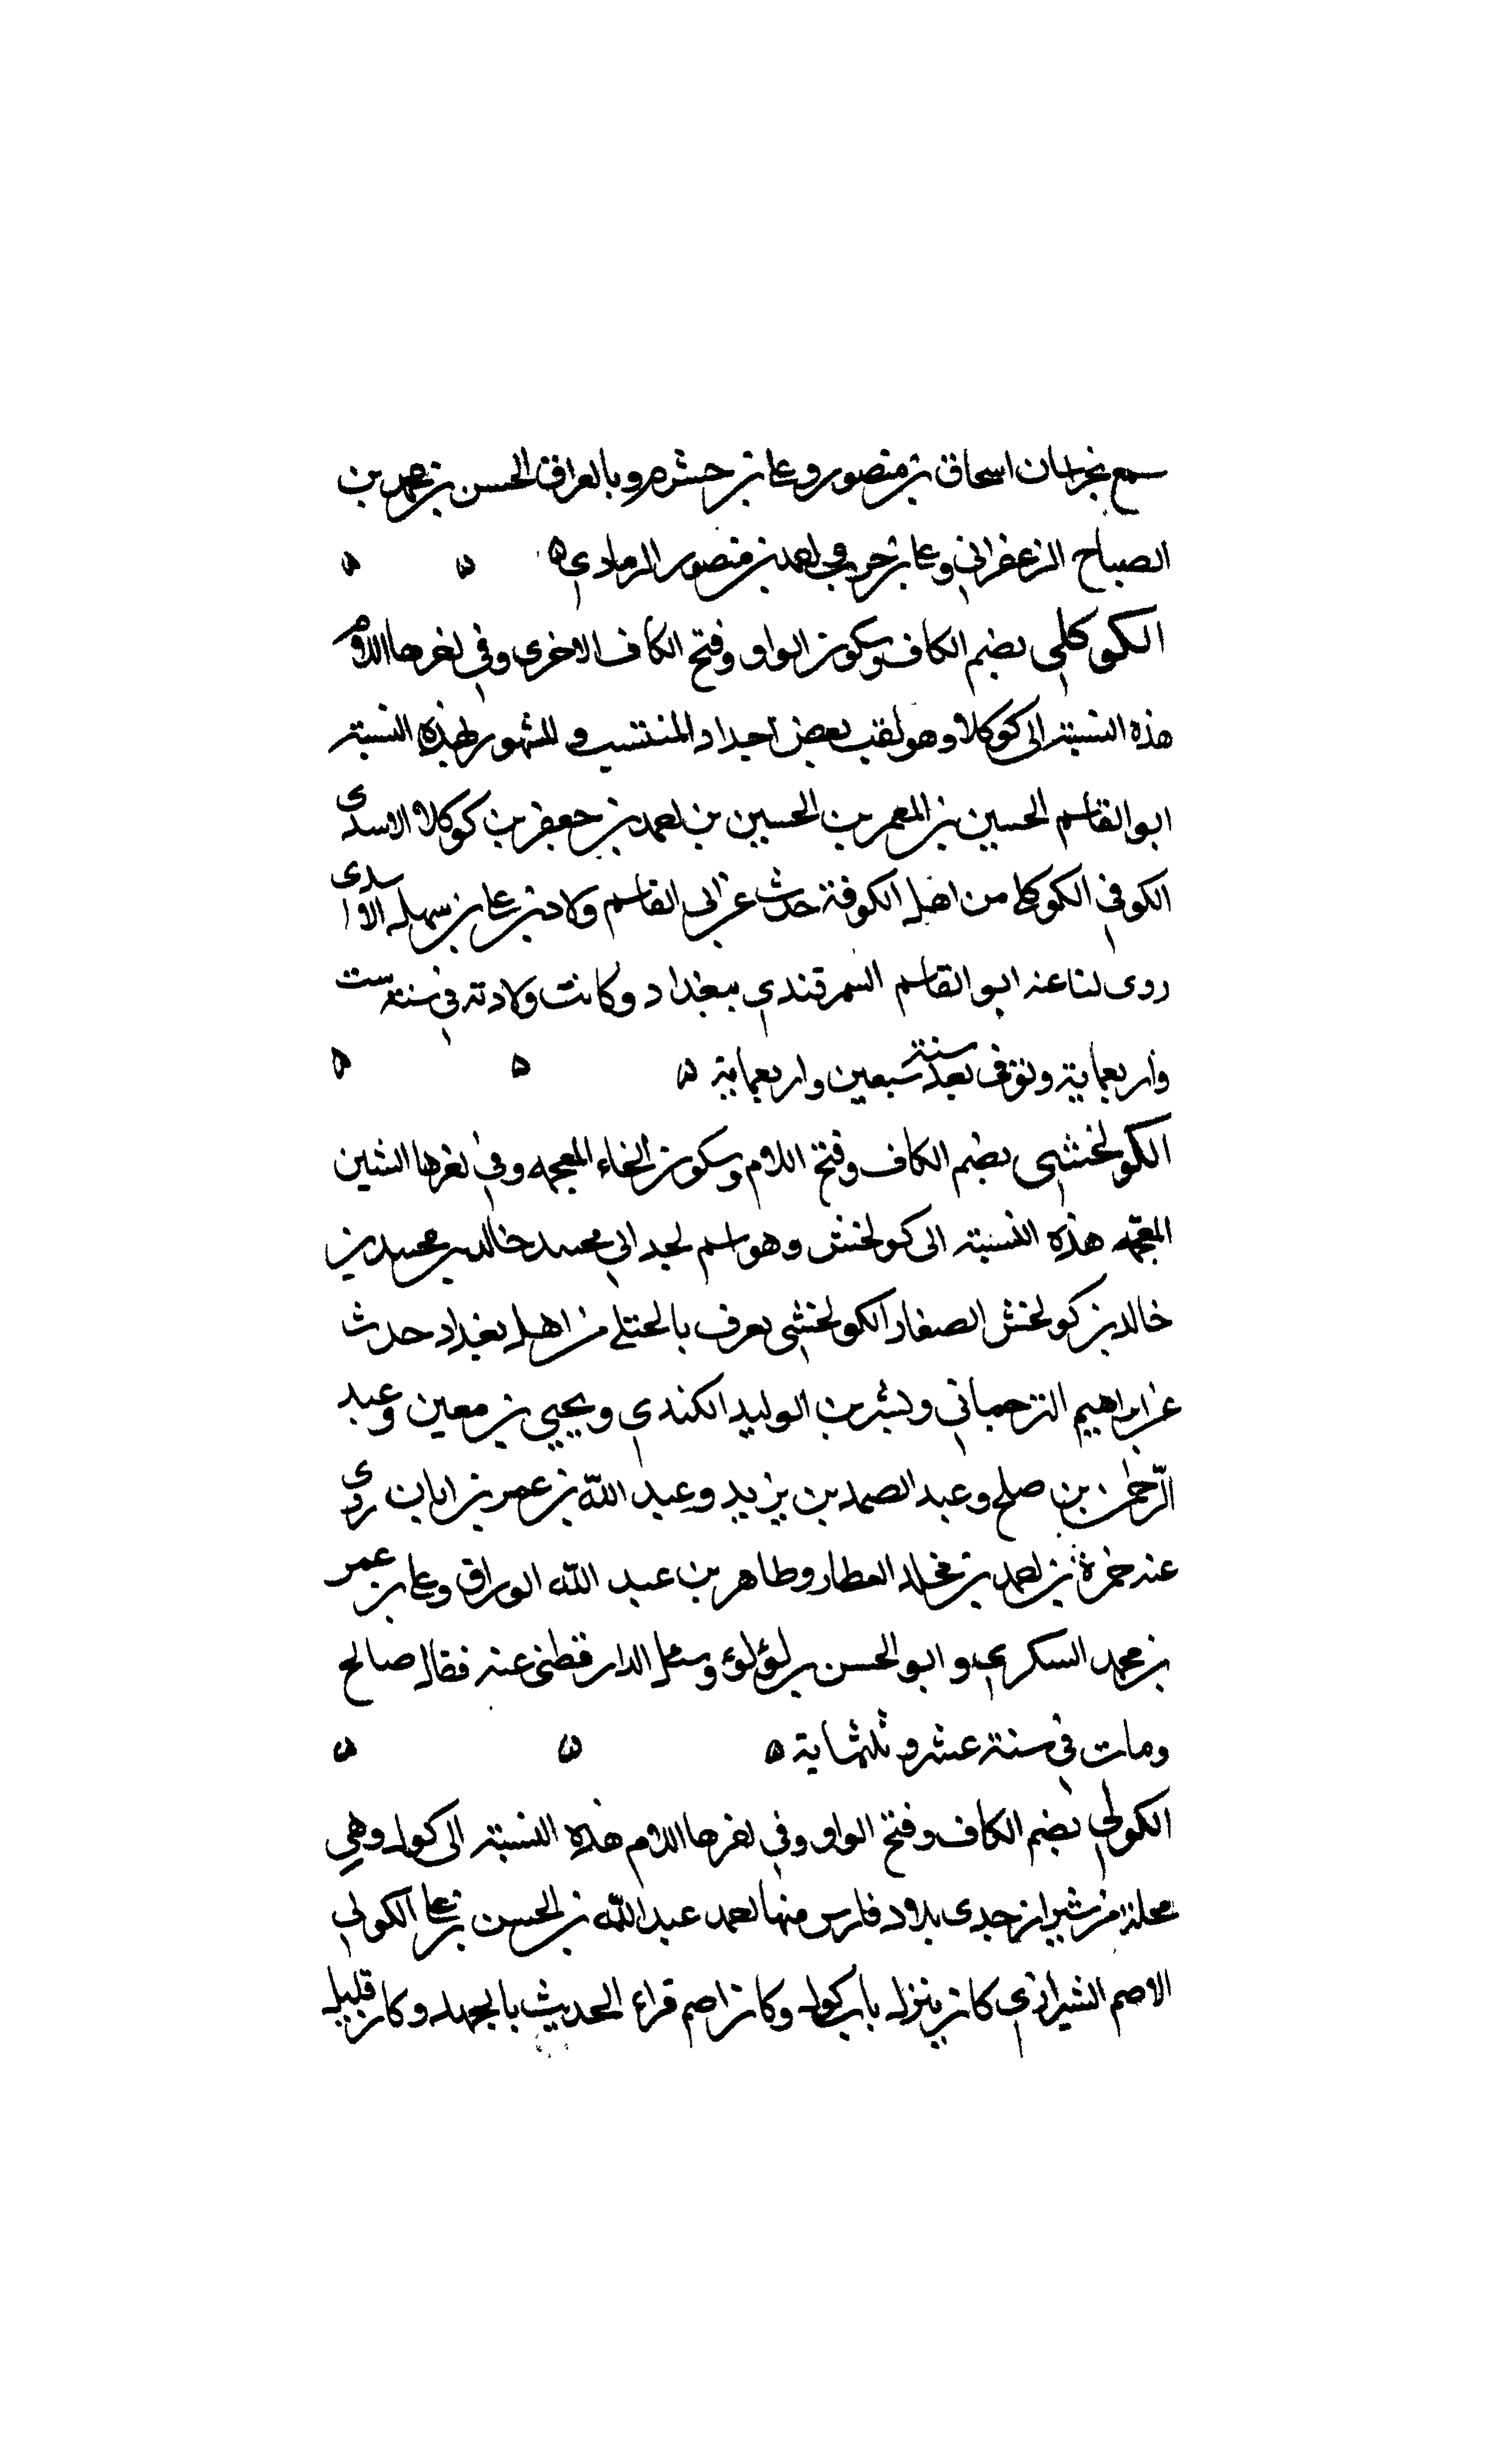 سمع بخراسان اسحاق بن منصور وعلي بن خشرم وبالعراق الحسن بن محمد بن
الصباح الزعفراني وعلي بن حرب واحمد بن منصور الرمادي ٥ ٥ ٥
الكوكلي بضم الكاف وسكون الواو وفتح الكاف الاخرى وفي اخرها اللام
هذه النسبة الى كوكلا وهو لقب بعض اجداد المنتسب والمشهور بهذه النسبة
ابو القاسم الحسين بن المعمر بن الحسين بن احمد بن جعفر بن كوكلا الاسدي
الكوفي الكوكلي من اهل الكوفة حدث عن ابي القاسم ولاد بن علي بن سهل الاسدي
روى لنا عنه ابو القاسم السمرقندي ببغداد وكانت ولادته في سنة ست
واربعماية وتوفي بعد سنة سبعين واربعماية ٥ ٥ ٥
الكولخشي بضم الكاف وفتح اللام وسكون الخاء المعجمه وفي اخرها الشين
المعجمه هذه النسبة الى كولخش وهو اسم لجد ابي محمد خالد بن محمد بن
خالد بن كولخش الصفار الكولخشي يعرف بالختلي من اهل بغداد حدث
عن ابراهيم الترجماني وبشر بن الوليد الكندي ويحيي بن معين وعبد
الرحمن بن صلح وعبد الصمد بن يزيد وعبد الله بن عمر بن ابان روى
عنه حمزة بن احمد بن مخلد العطار وطاهر بن عبد الله الوراق وعلي بن عمر
بن محمد السكري وابو الحسن بن لؤلوء وسئل الدارقطني عنه فقال صالح
ومات في سنة عشر وثلثماية ٥ ٥ ٥
الكولي بضم الكاف وفتح الواو وفي اخرها اللام هذه النسبة الى كول وهي
محلة من شيراز احدى بلاد فارس منها احمد عبد الله بن الحسن بن علي الكولي
الاصم الشيرازي كان ينزل باب كول وكان اصم قراء الحديث بالجهد وكان قليل